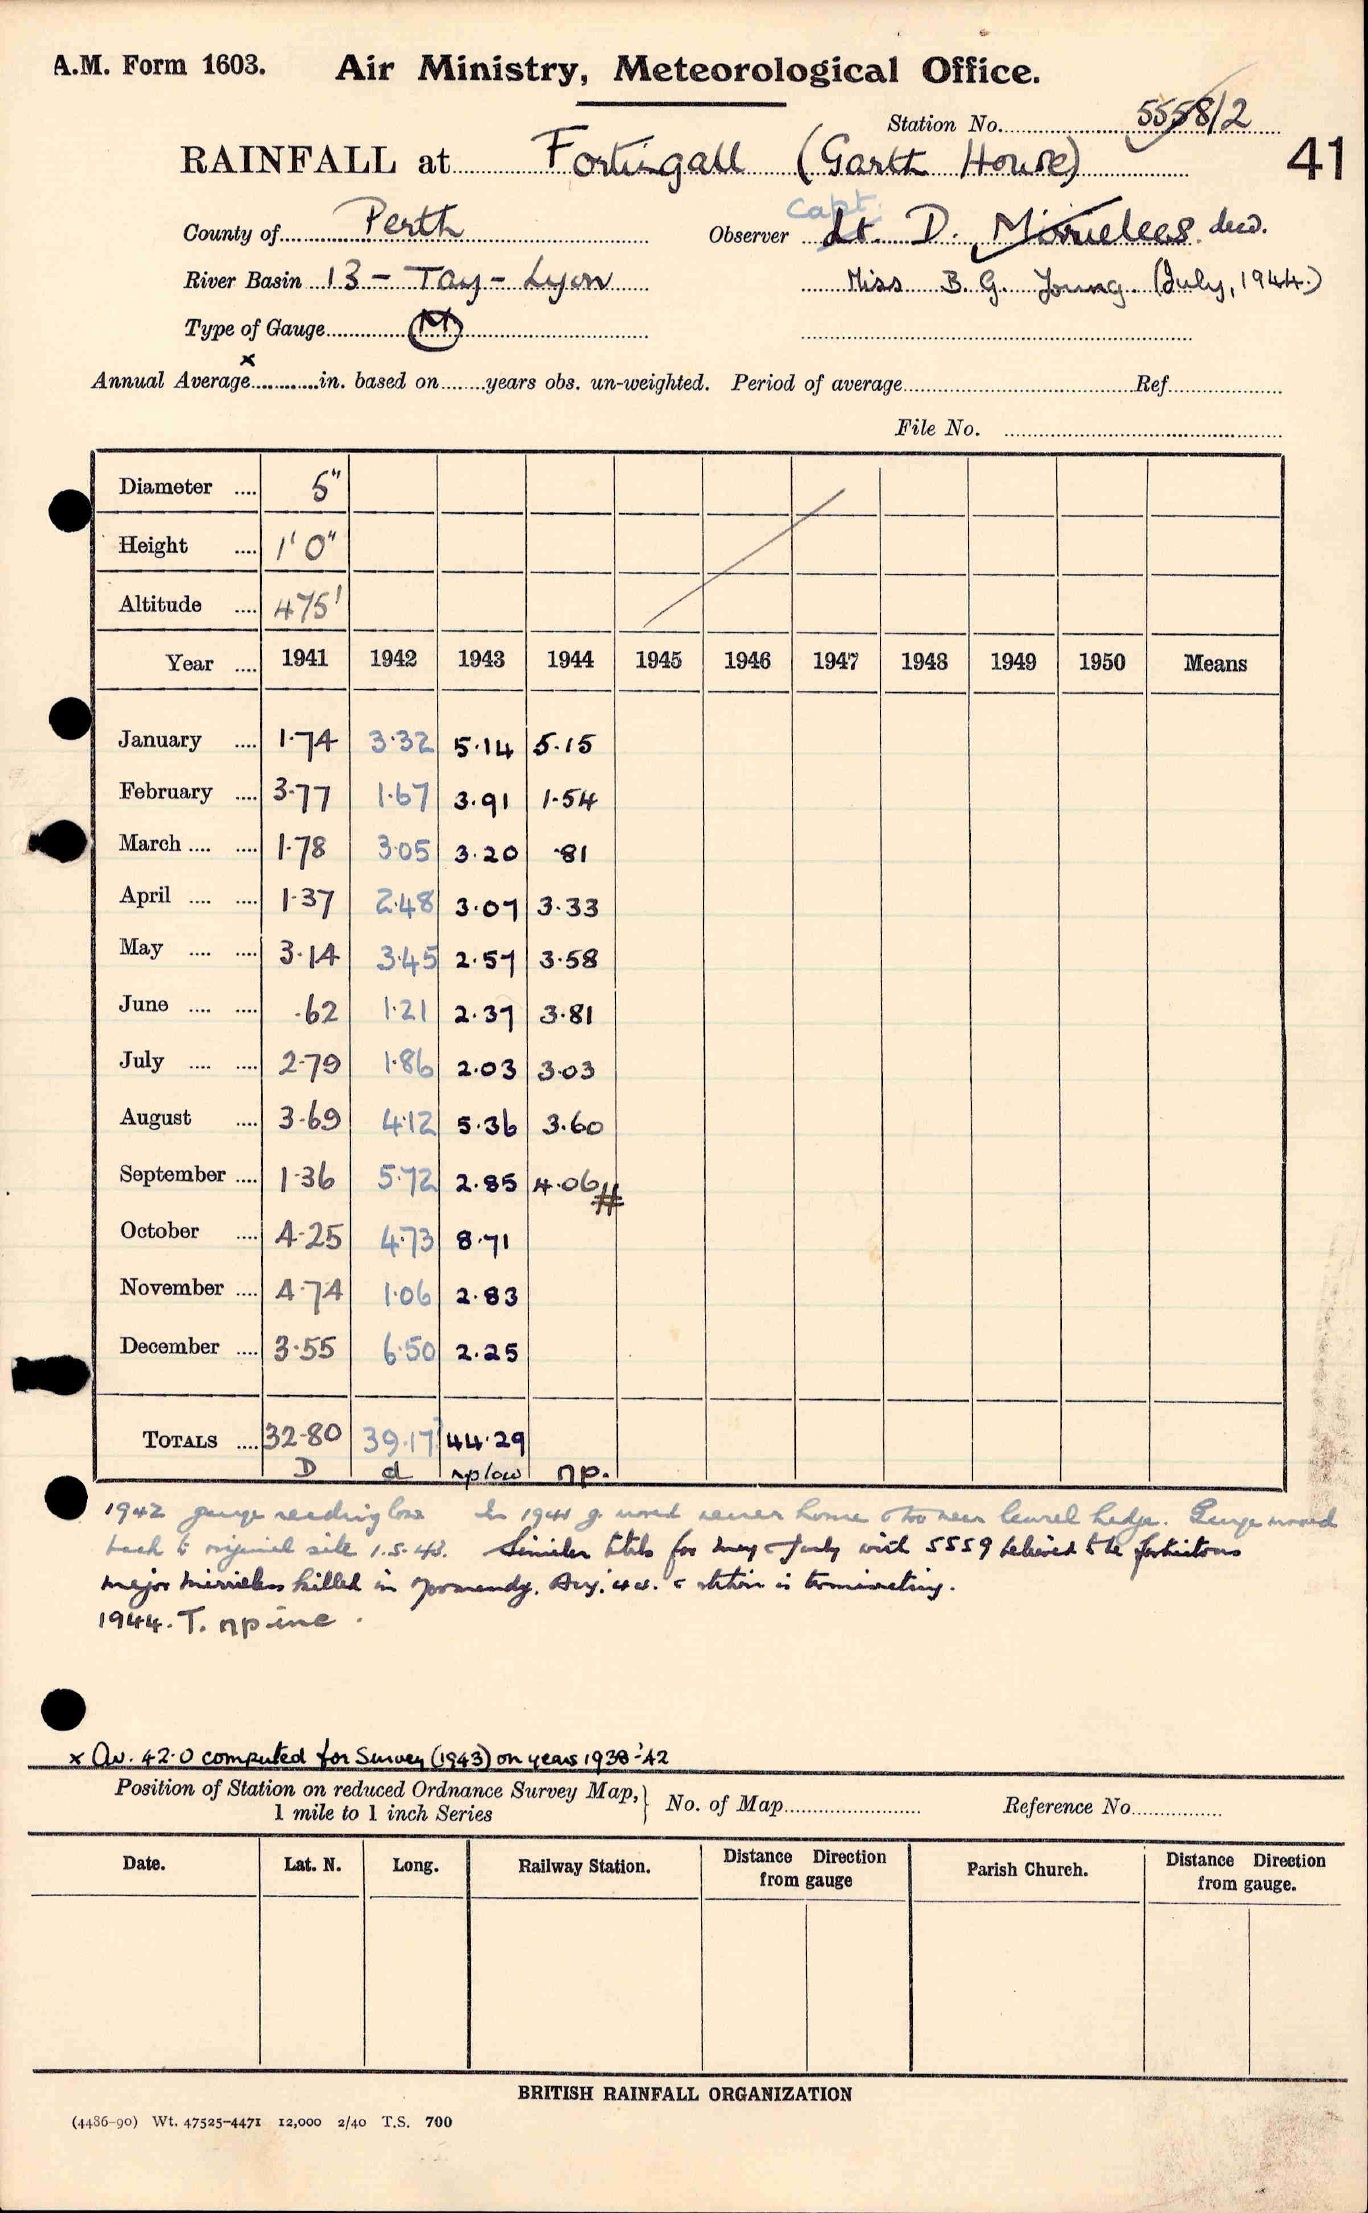 A.M. Form 1603. Air Ministry, Meteorological Office.
Station No. 5558/2
RAINFALL at Fortingall (Garth House) 41
County of Perth Observer Capt. Lt. D. Mirrielees decd.
River Basin 13 - Tay - Lyon Miss B. G. Young (July, 1944.)
Type of Gauge M
Annual Average x in. based on years obs. un-weighted. Period of average Ref
File No.
Diameter 5"
Height 1' 0"
Altitude 475'
Year 1941 1942 1943 1944 1945 1946 1947 1948 1949 1950 Means
January 1.74 3.32 5.14 5.15
February 3.77 1.67 3.91 1.54
March 1.78 3.05 3.20 .81
April 1.37 2.48 3.07 3.33
May 3.14 3.45 2.57 3.58
June .62 1.21 2.37 3.81
July 2.79 1.86 2.03 3.03
August 3.69 4.12 5.36 3.60
September 1.36 5.72 2.85 4.06 #
October 4.25 4.73 8.71
November 4.74 1.06 2.83
December 3.55 6.50 2.25
TOTALS 32.80 39.17 44.29
D d np low np.
1942 gauge reading low In 1941 g. moved nearer home & too near laurel hedge. Gauge moved
back to original site 1.5.43. Similar totals for May & July with 5559 believed to be fortuitous
Major Mirrielees killed in Normandy, Aug. '44. & station is terminating.
1944. T. np inc.
x Av. 42.0 computed for Survey (1943) on years 1938-'42
Position of Station on reduced Ordnance Survey Map,
1 mile to 1 inch Series
No. of Map Reference No.
Date. Lat. N. Long. Railway Station. Distance Direction from gauge Parish Church. Distance Direction from gauge.
BRITISH RAINFALL ORGANIZATION
(4486-90) Wt. 47525-4471 12,000 2/40 T.S. 700